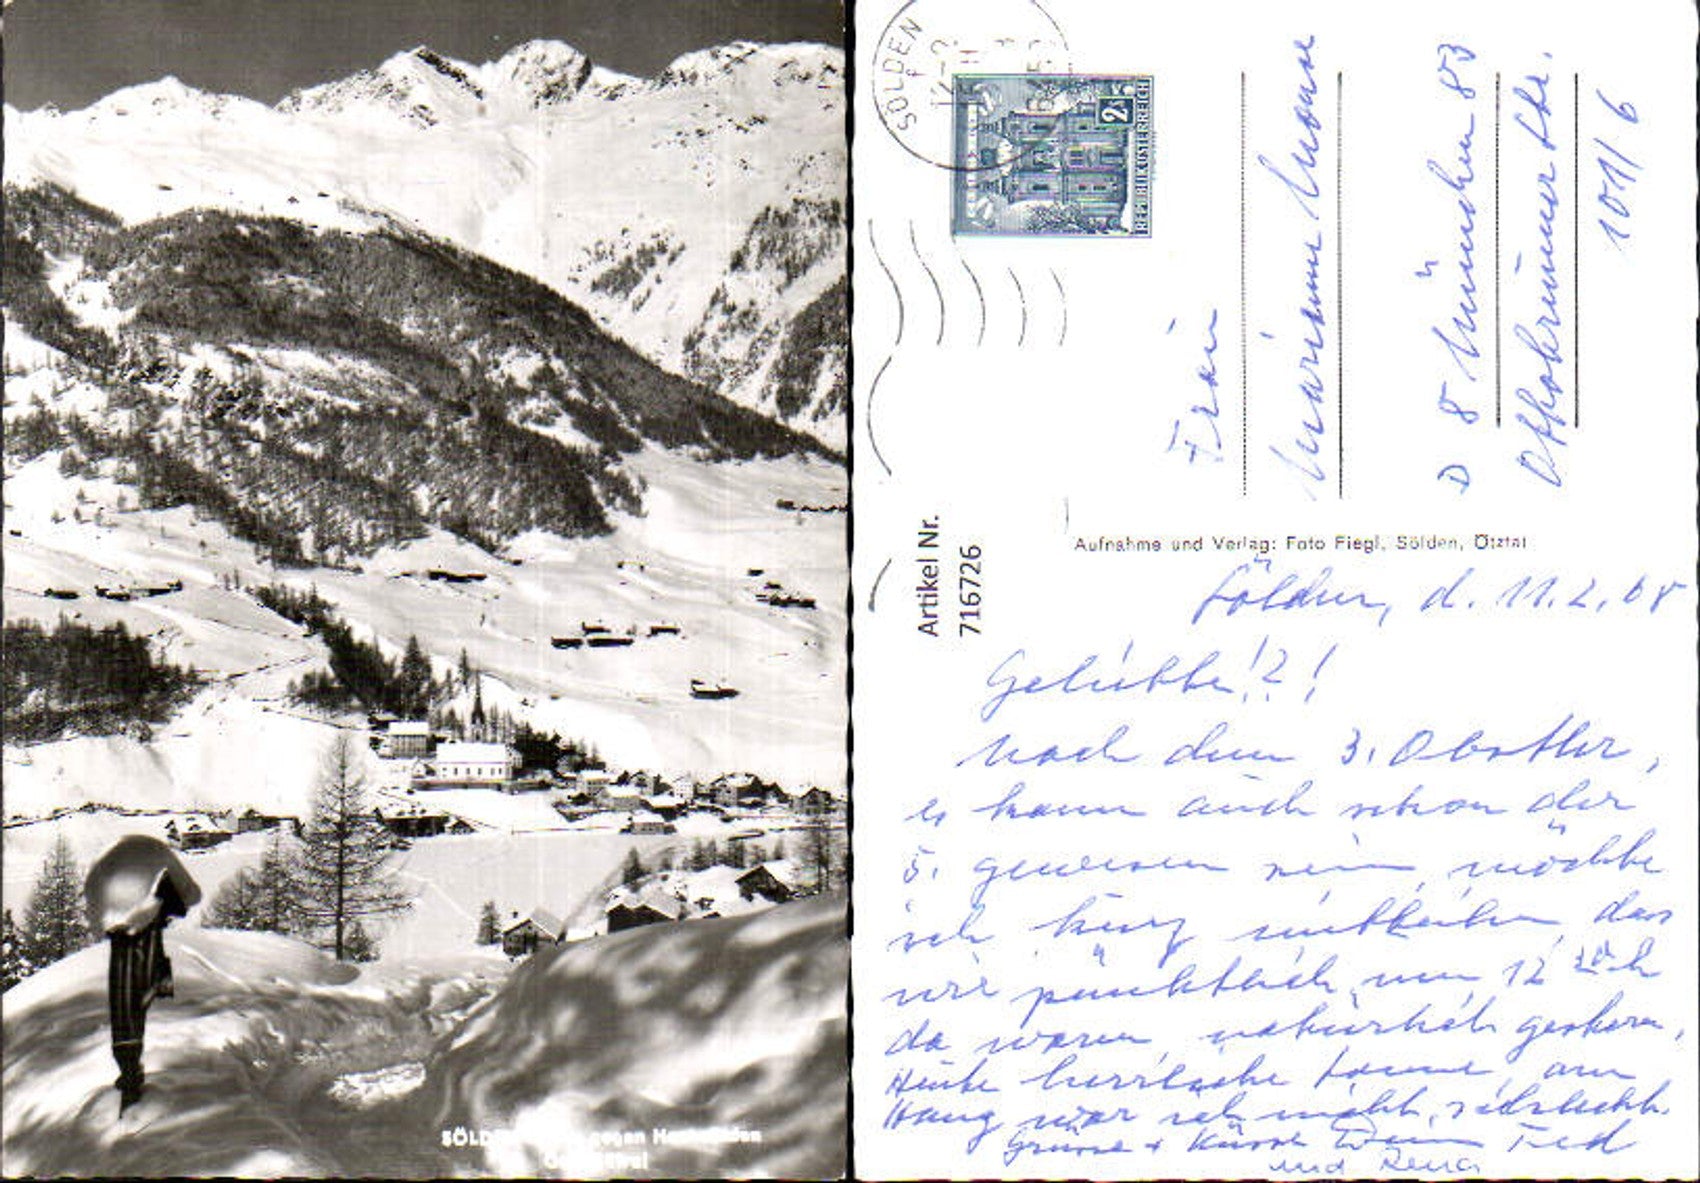 SÖLDEN
2s
REPUBLIK ÖSTERREICH
Artikel Nr.
716726
Aufnahme und Verlag: Foto Fiegl, Sölden, Ötztal
Frau
Marianne
D 8 München 83
Ottobrunner Str.
101/6
Sölden, d. 11.2.68
Geliebte!?!
Nach dem 3. Obstler,
es kann auch schon der
5. gewesen sein, möchte
ich kurz mitteilen, dass
wir pünktlich um 12
da waren, natürlich gestern.
Heute herrliche Sonne, am
Hang war ich nicht schlecht.
Grüsse + Küsse Dein Fred
und
SÖLDEN gegen